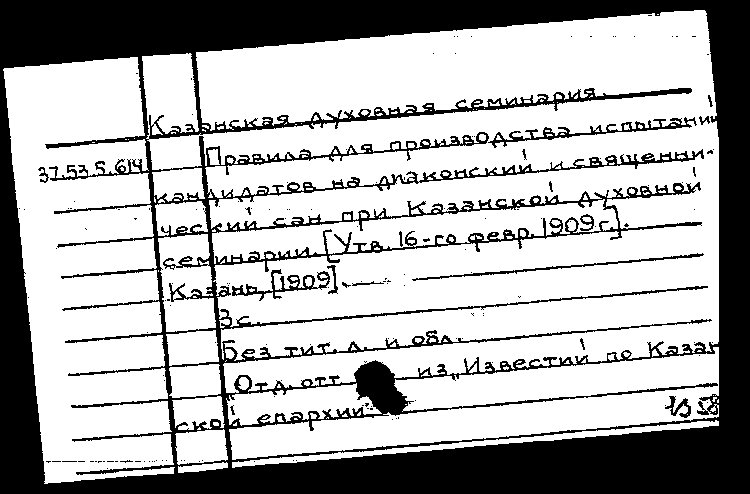 Казанская духовная семинария.
37.53.5.614 Правила для производства испытаний
кандидатов на диаконский и священни-
ческий сан при Казанской духовной
семинарии. [Утв. 16-го февр. 1909 г.].
Казань, [1909].
3 с.
Без тит. л. и обл.
"Отд. отт из „Известий по Казан
ской епархии